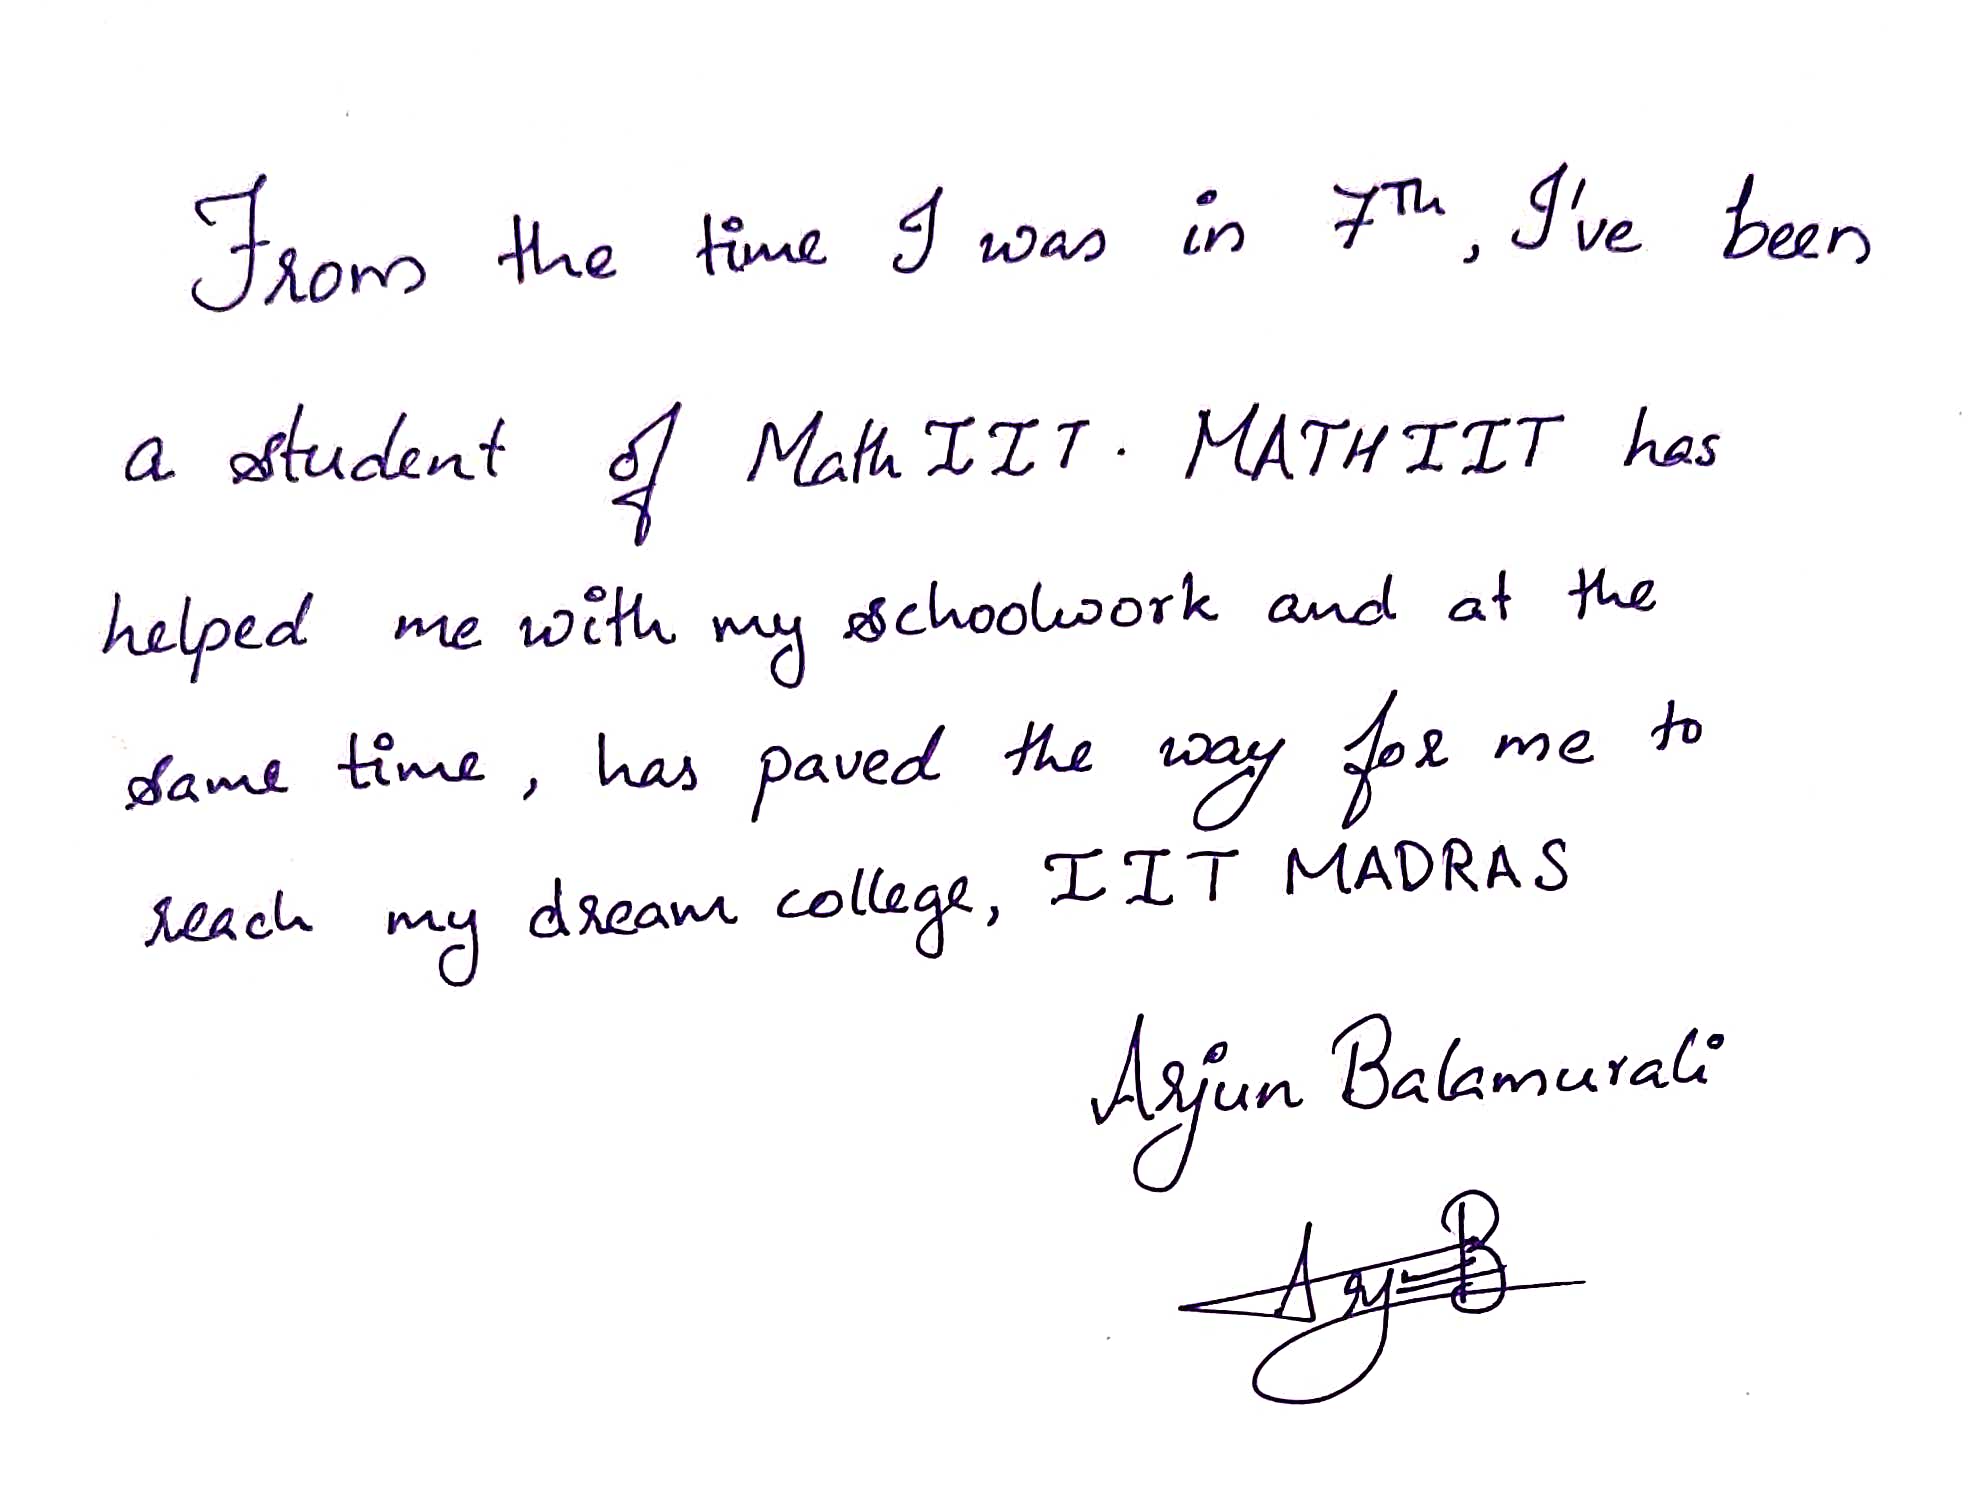 From the time I was in 7Th, I've been
a student of Math IIT. MATHIIT has
helped me with my schoolwork and at the
same time, has paved the way for me to
reach my dream college, IIT MADRAS
Arjun Balamurali